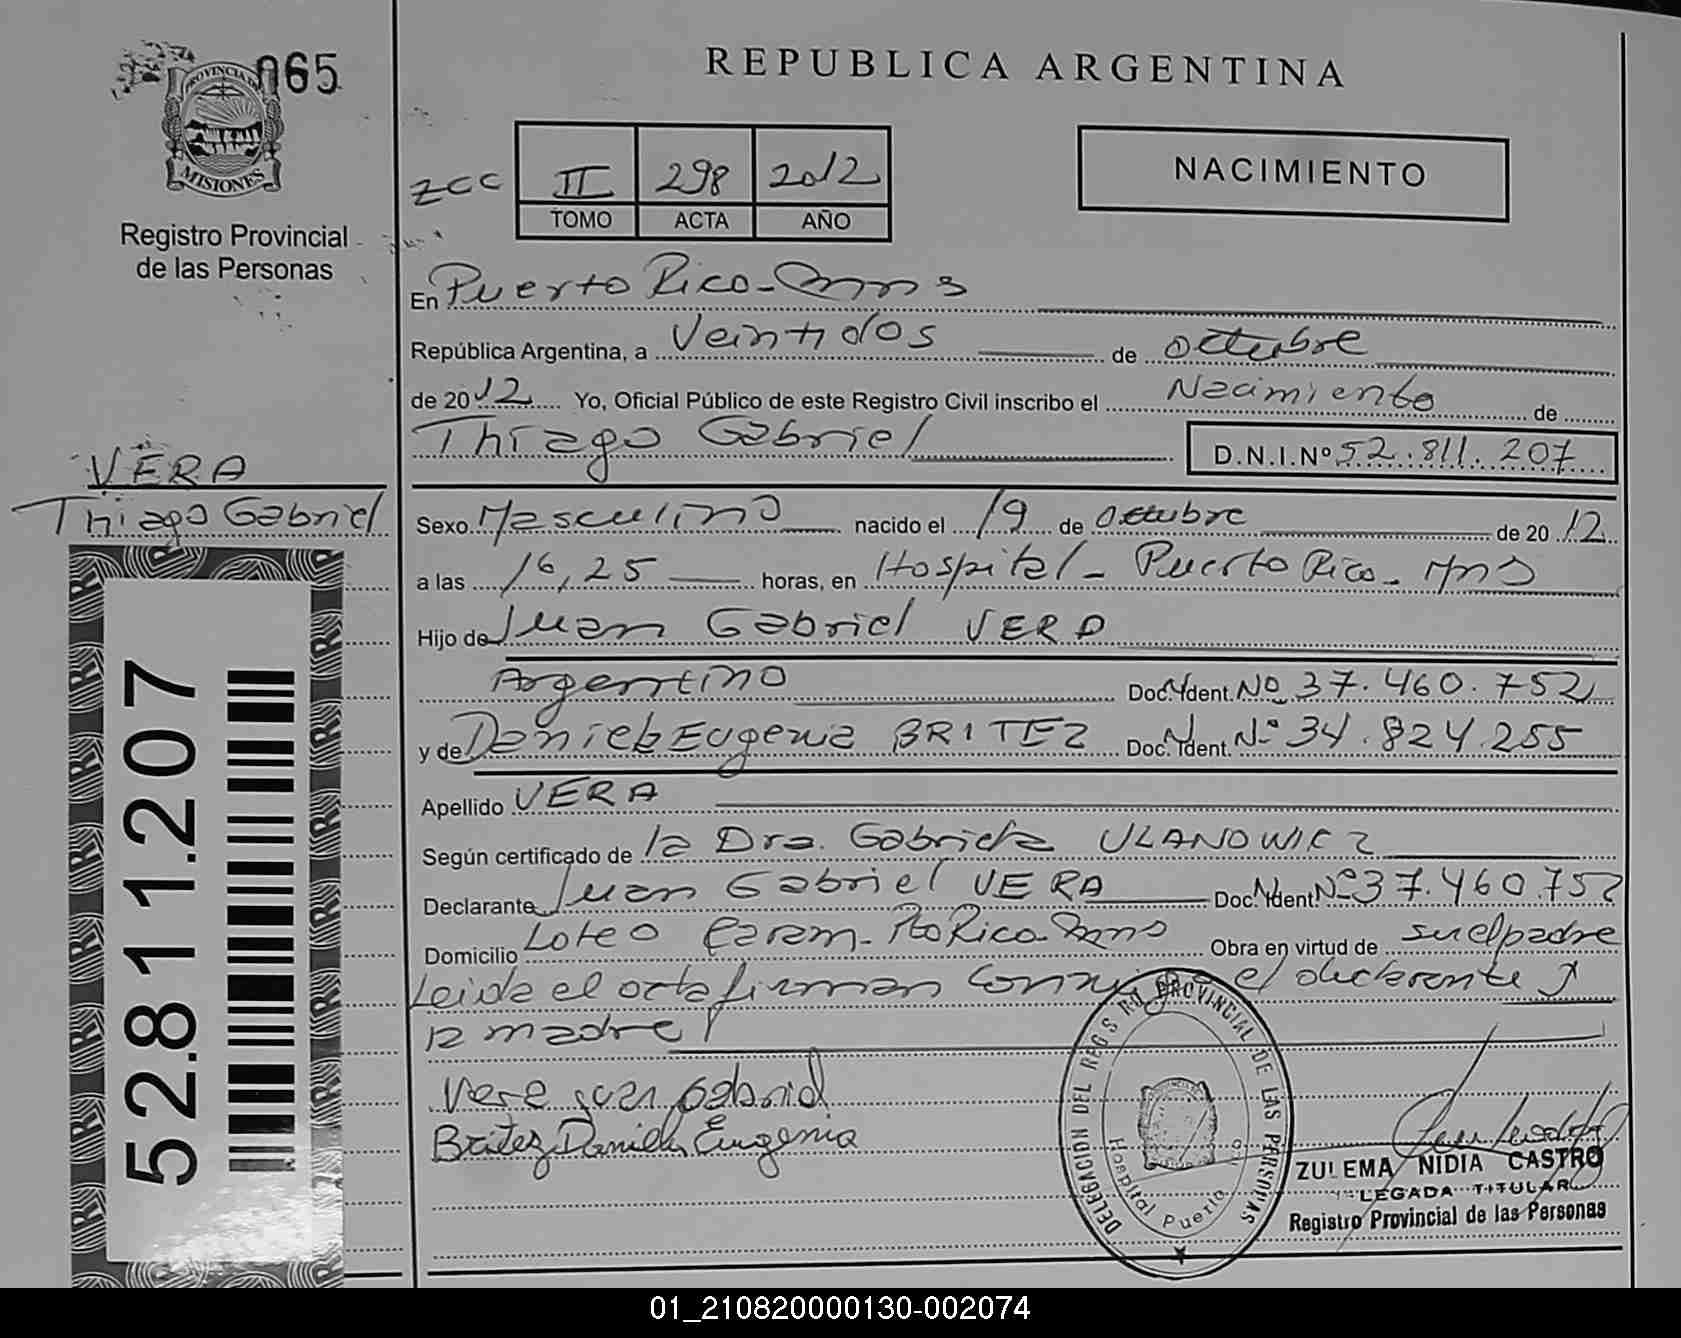 065
PROVINCIA DE
MISIONES
Registro Provincial
de las Personas
REPUBLICA ARGENTINA
NACIMIENTO
ZCC II 298 2012
TOMO ACTA AÑO
En Puerto Rico - Mns
República Argentina, a Veintidos de octubre
de 2012 Yo, Oficial Público de este Registro Civil inscribo el Nacimiento de
Thiago Gabriel D.N.I.Nº 52.811.207
VERA
Thiago Gabriel
Sexo Masculino nacido el 19 de Octubre de 2012
a las 16,25 horas, en Hospital - Puerto Rico - Mns
Hijo de Juan Gabriel VERA
Argentino Doc. Ident. Nº 37.460.752
y de Daniela Eugenia BRITEZ Doc. Ident. Nº 34.824.255
Apellido VERA
Según certificado de la Dra. Gabriela ULANOWICZ
Declarante Juan Gabriel VERA Doc. Ident. Nº 37.460.752
Domicilio Loteo - Pto Rico - Mns Obra en virtud de su el padre
Leida el acta firman conmigo el declarante y
la madre
Vera Juan Gabriel
Britez Daniela Eugenia
DELEGACION DEL REGISTRO PROVINCIAL DE LAS PERSONAS
Hospital Puerto
ZULEMA NIDIA CASTRO
DELEGADA TITULAR
Registro Provincial de las Personas
52.811.207
01_210820000130-002074